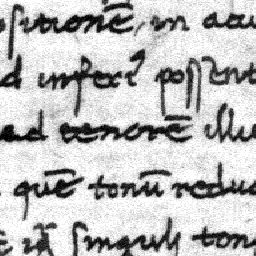 ositionē, in acu
d inferi⁹ possent
ad tenorē illu
quē tonū reduc
iā singuli ton